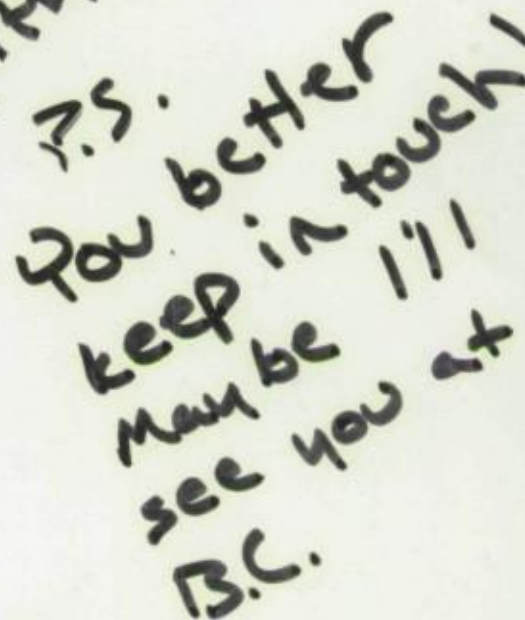 P.S.
You better
keep in touch!
Maybe I'll
see you at
B.C.